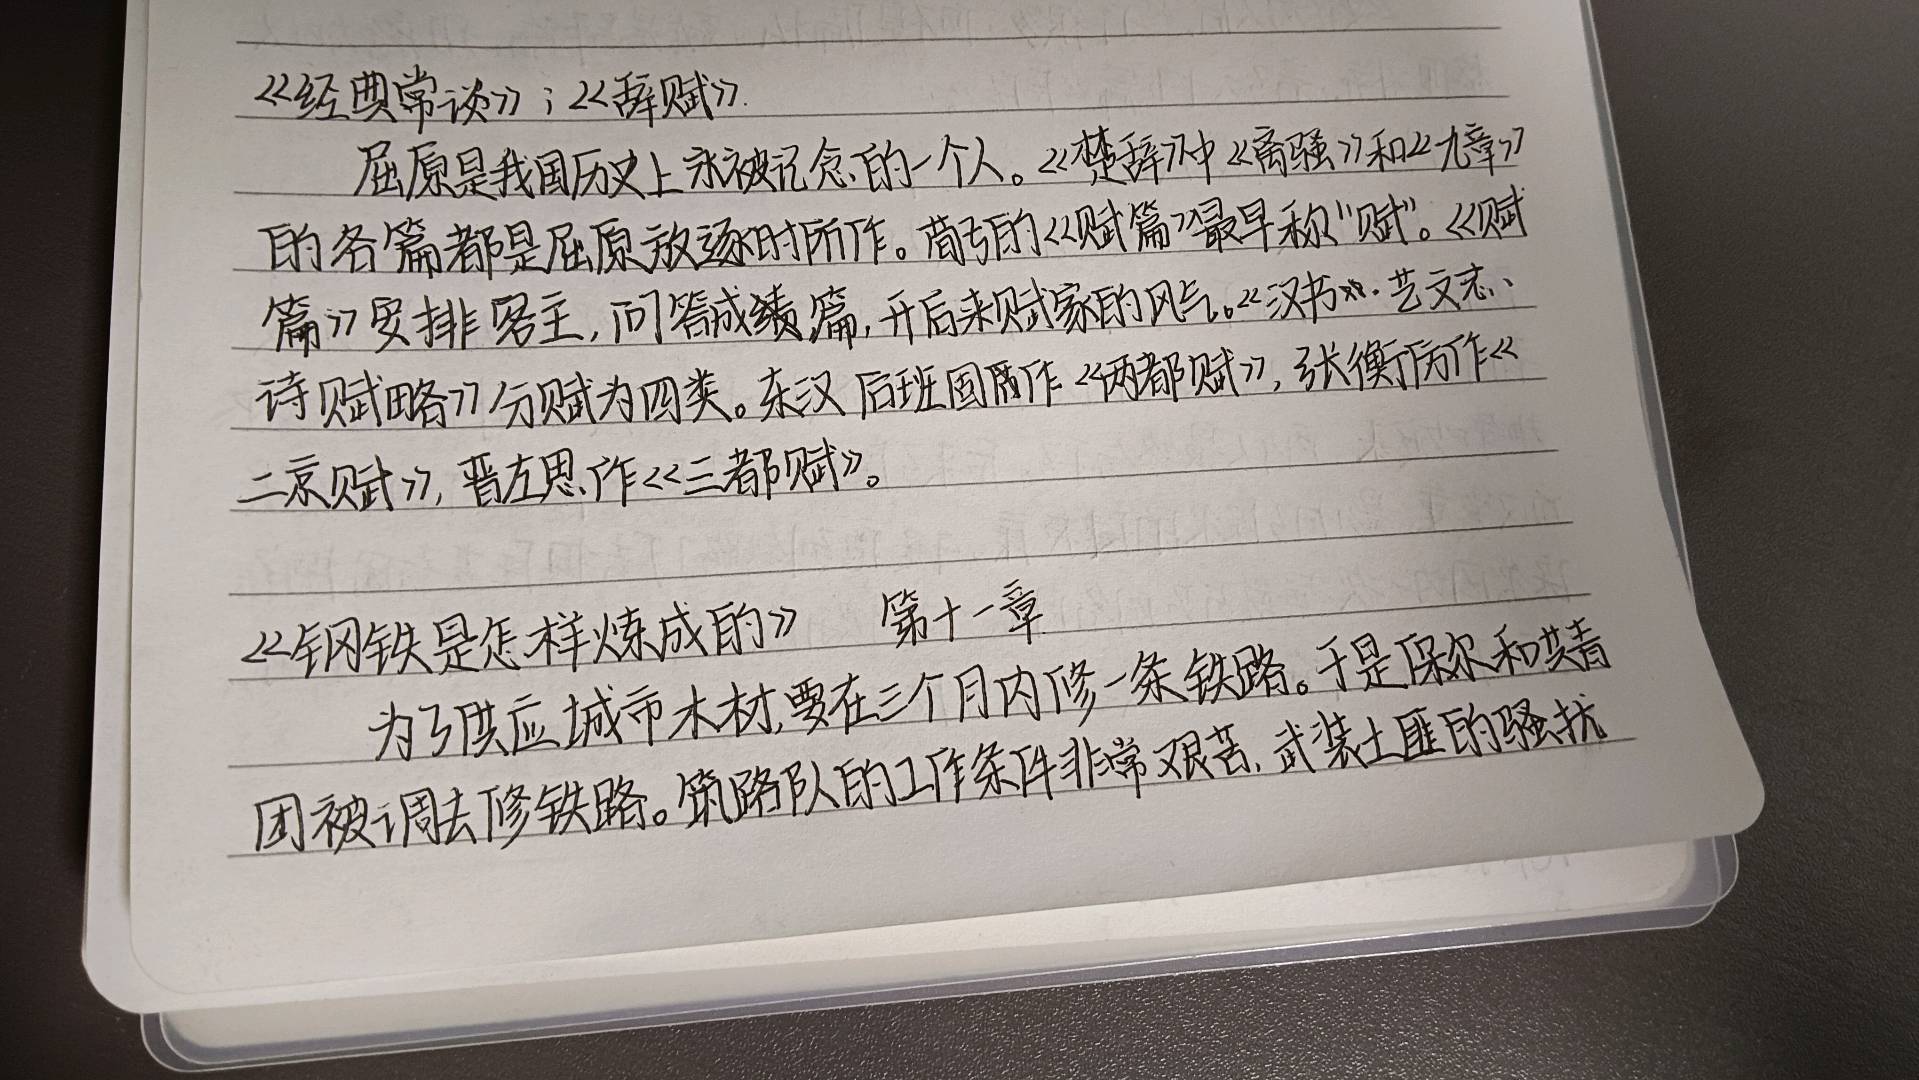 《经典常谈》；《辞赋》.
屈原是我国历史上永被记念的一个人。《楚辞》中《离骚》和《九章》
的各篇都是屈原放逐时所作。荀的《赋篇》最早称"赋"。《赋
篇》安排客主,问答成篇,开后来赋家的风气。《汉书·艺文志·
诗赋略》分赋为四类。东汉后班固作《两都赋》,张衡作《
二京赋》,晋左思作《三都赋》。
《钢铁是怎样炼成的》 第十一章
为了供应城市木材,要在三个月内修一条铁路。于是保尔和共青
团被调去修铁路。筑路队的工作条件非常艰苦,武装土匪的骚扰